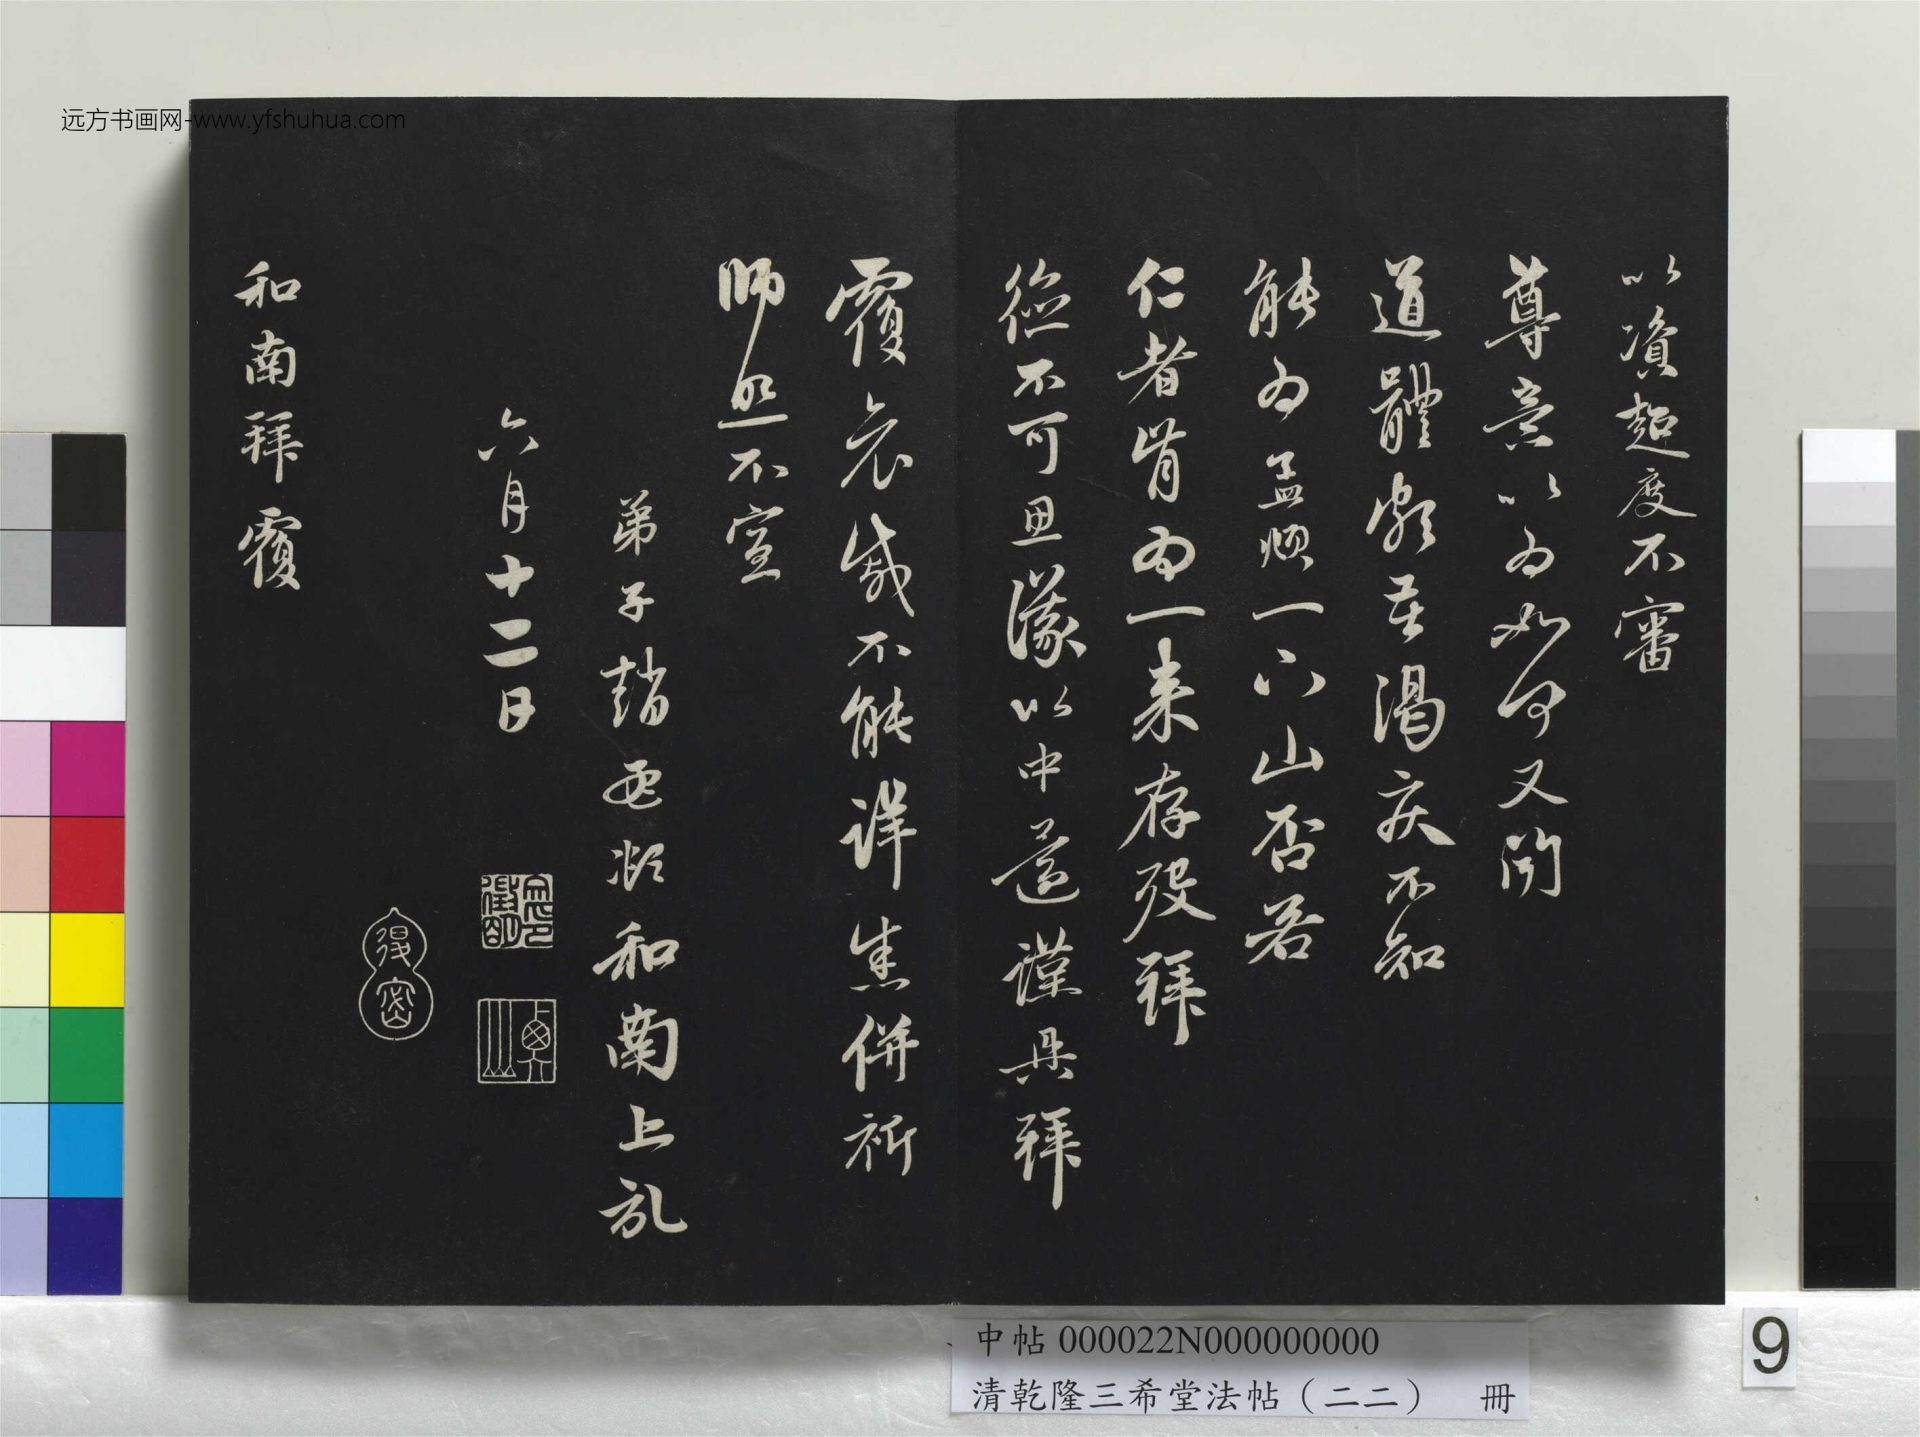 以資超度不審
尊意以為如何又聞
道體頗苦渴疾不知
能為孟頫一下山否若
仁者肯為一來存歿拜
德不可思議以中還謹具拜
覆哀感不能詳悉併祈
師照不宣
弟子趙孟頫和南上記
六月十二日
和南拜覆
远方书画网-www.yfshuhua.com
中帖 000022N000000000
清乾隆三希堂法帖（二二） 冊
9